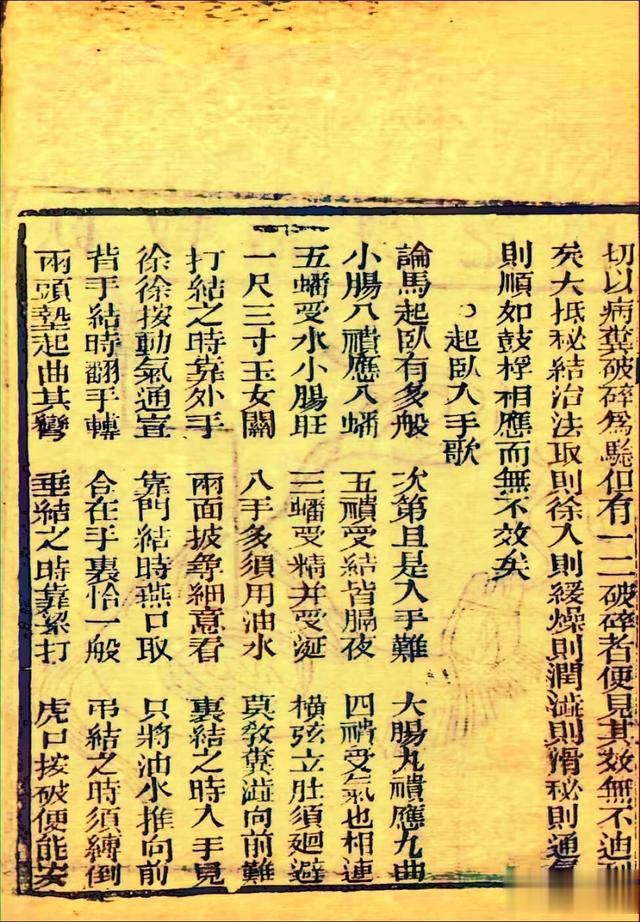 切以病糞破碎爲騐但有一二破碎者便見其效無不通利
矣大抵秘結治法取則徐入則緩燥則潤澁則滑秘則通氣
則順如鼓桴相應而無不效矣
○起臥入手歌
論馬起臥有多般 次第且是入手難 大腸九積應九曲
小腸八積應八蟠 五積受結皆膈夜 四積受氣也相連
五蟠受水小腸旺 三蟠受精并受涎 橫弦立肚須廻避
一尺三寸玉女關 入手多須用油水 莫敎糞澁向前難
打結之時靠外手 兩面披尋細意看 裏結之時入手覓
徐徐按動氣通宣 靠門結時燕口取 只將油水推向前
背手結時翻手轉 合在手裏恰一般 吊結之時須縛倒
兩頭墊起曲其彎 垂結之時靠緊打 虎口挨破便能安